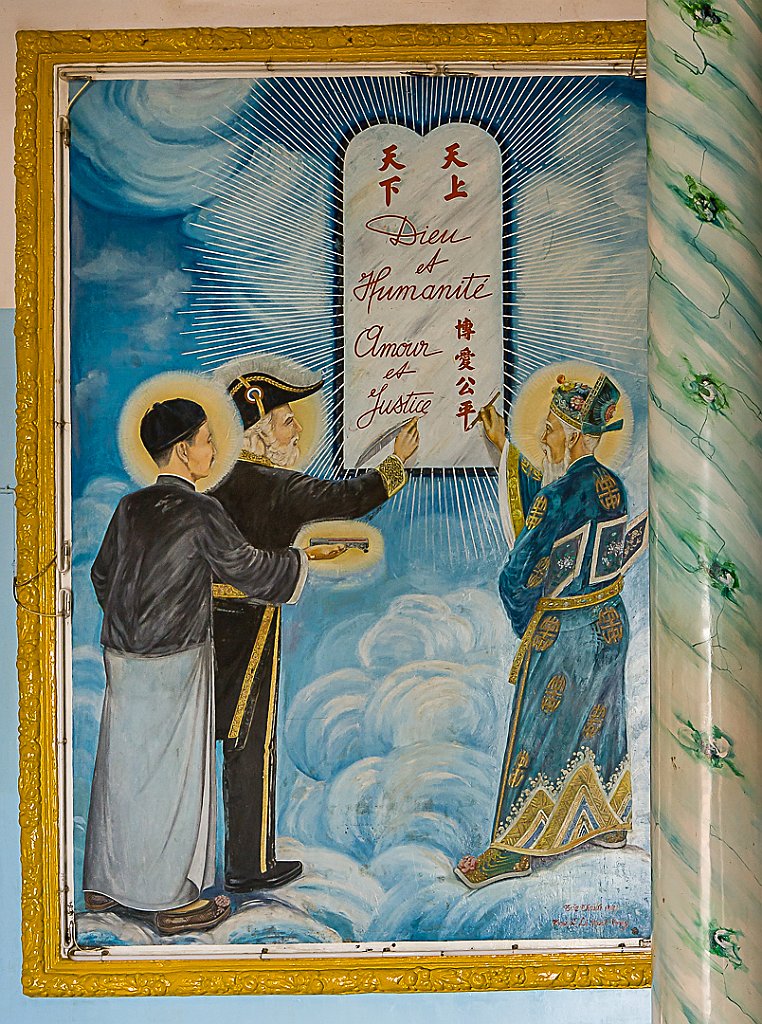 天上
天下
Dieu
et
Humanité
Amour
et
Justice
博愛公平